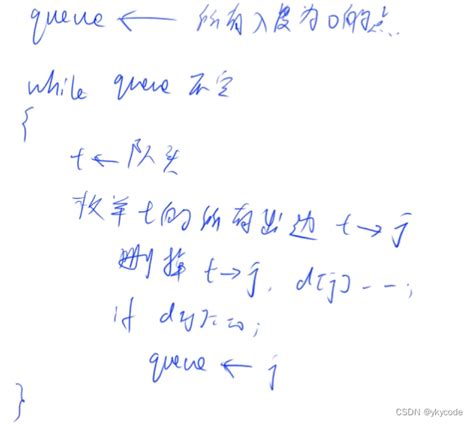 queue ← 所有入度为0的点
while queue 不空
{
t ← 队头
枚举t的所有出边 t→j
删掉 t→j, d[j]--;
if d[j]==0;
queue ← j
}
CSDN @ykycode